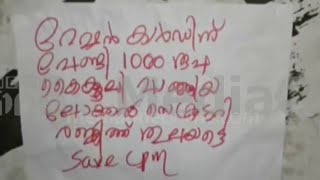 റേഷൻ കാർഡിന്
വേണ്ടി 1000 രൂപ
കൈക്കൂലി വാങ്ങിയ
ലോക്കൽ സെക്രട്ടറി
രഞ്ജിത്ത് തുലയട്ടെ
Save CPM